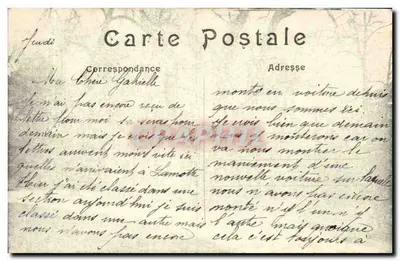 Carte Postale
Correspondance
Adresse
Jeudi
Ma Chère Gabrielle
Je n'ai pas encore reçu de
lettre pour moi
demain mais je vois que les
lettres arrivent moins vite ici
qu'elles n'arrivaient à Lamotte
hier j'ai été classé dans une
section aujourd'hui je suis
classé dans une autre mais
nous n'avons pas encore
monté en voiture depuis
que nous sommes ici
Je crois bien que demain
nous monterons car on
va nous montrer le
maniement d'une
nouvelle voiture sur laquelle
nous n'avons pas encore
monté n'est l'un n'y
l'autre mais quoique
cela c'est toujours à